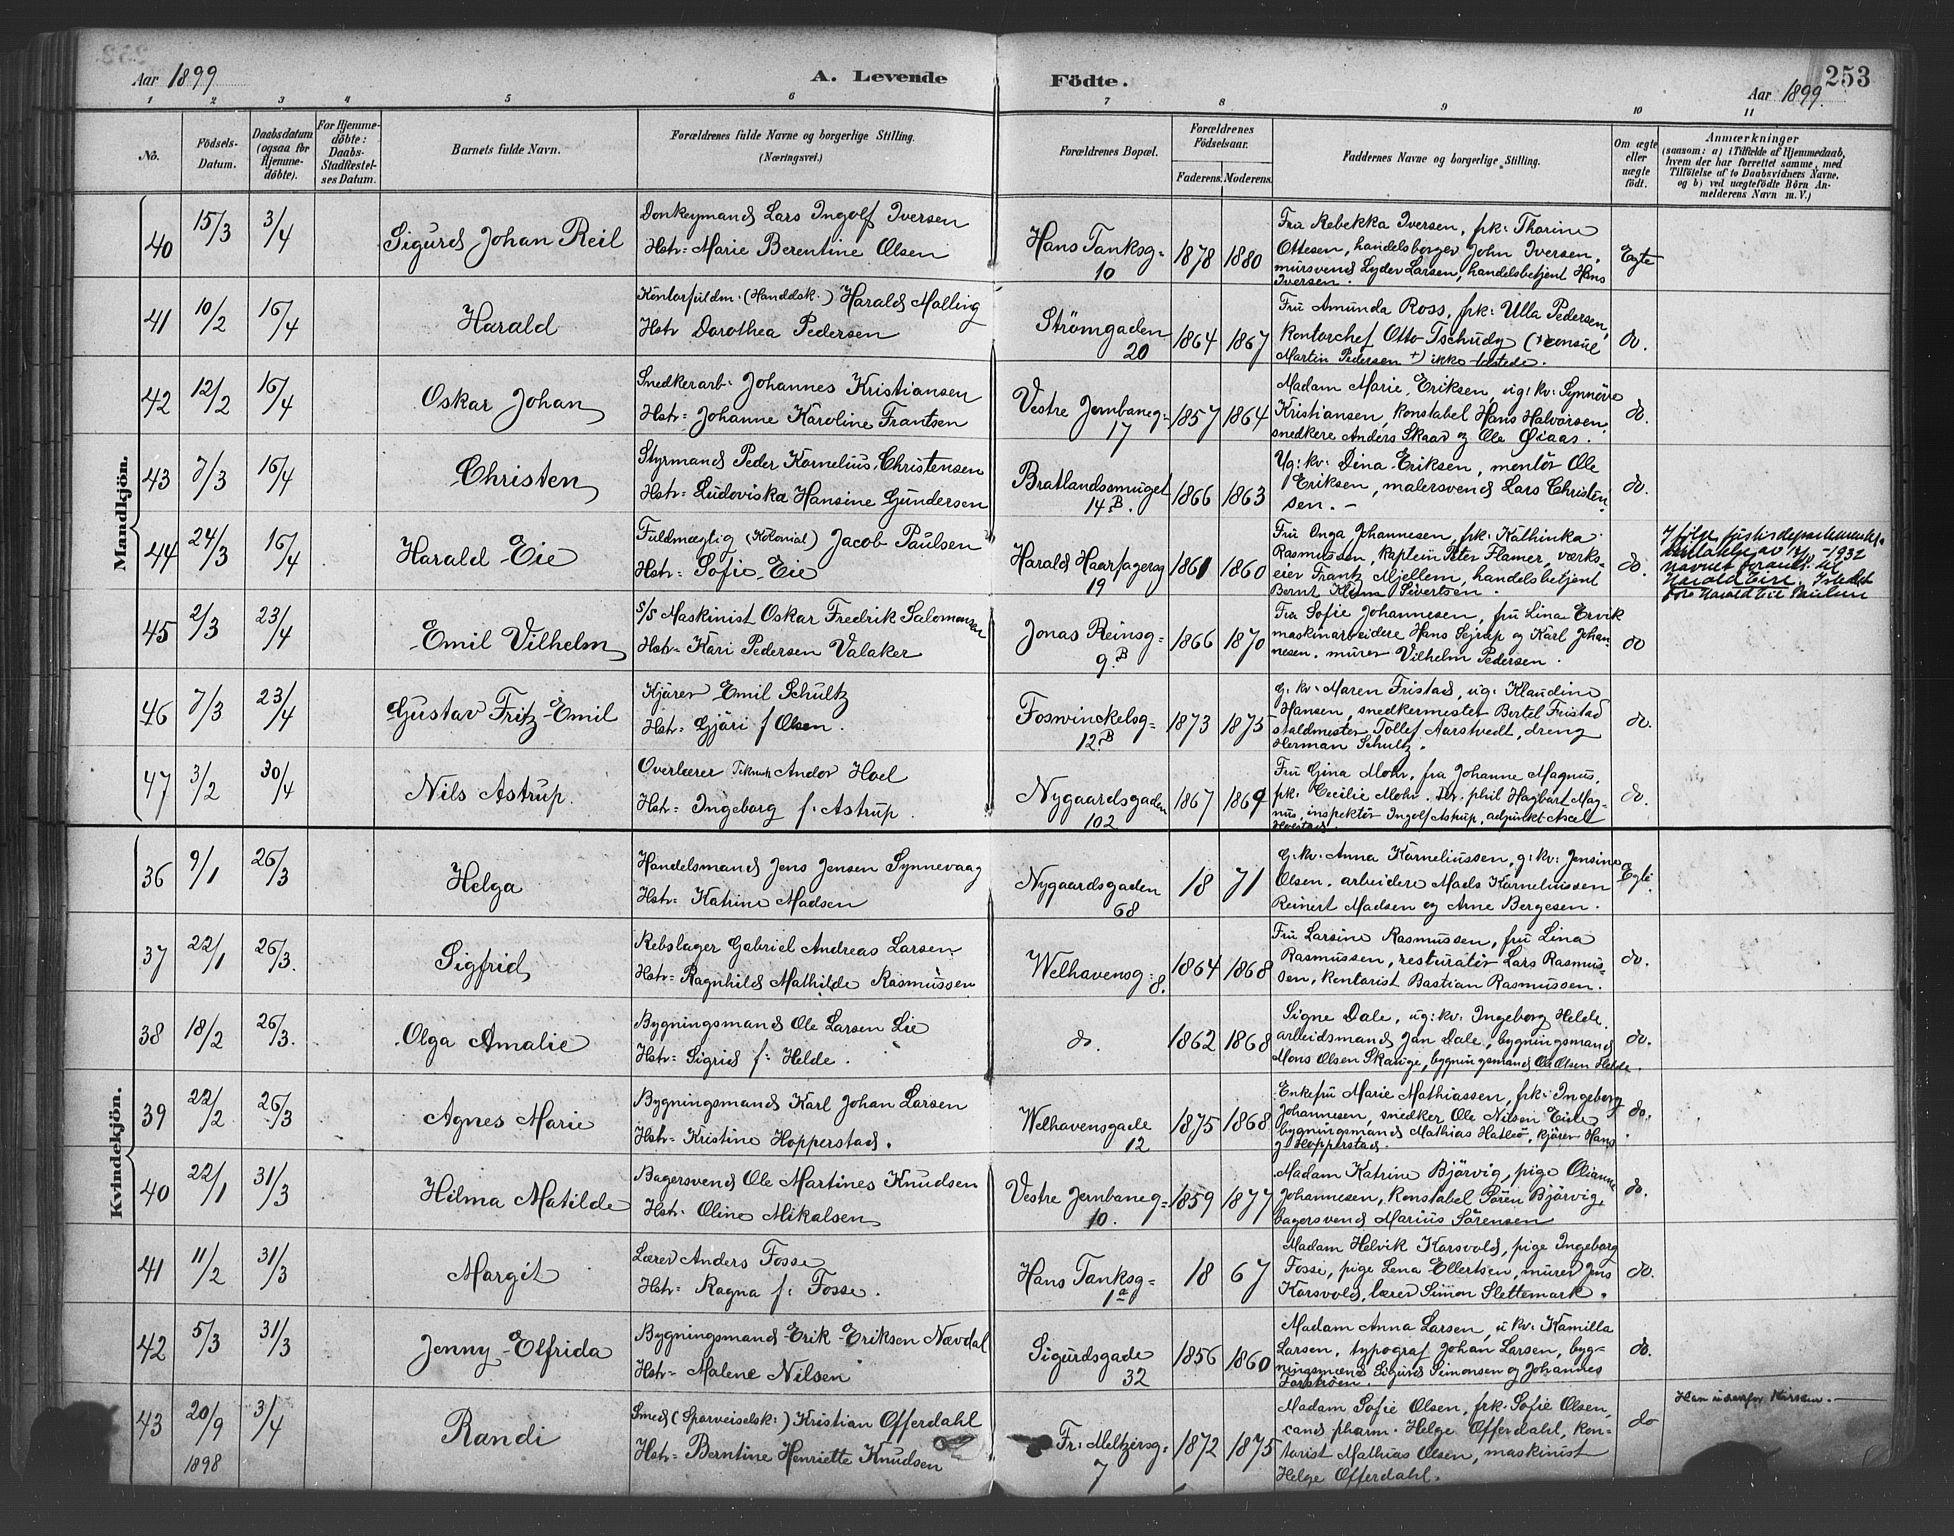 Aar 1899
A. Levende
Födte.
Aar 1899.
253
1 2 3 4 5 6 7 8 9 10 11
No.
Födsels-
Datum.
Daabsdatum
(ogsaa for
Hjemme-
döbte).
For Hjemme-
döbte:
Daabs-
Stadfæstel-
ses Datum.
Barnets fulde Navn.
Forældrenes fulde Navne og borgerlige Stilling.
(Næringsvei.)
Forældrenes Bopæl.
Forældrenes
Födselsaar.
Faderens. Moderens.
Faddernes Navne og borgerlige Stilling.
Om ægte
eller
uægte
födt.
Anmærkninger
(saasom: a) i Tilfælde af Hjemmedaab,
hvem der har forrettet samme, med
Tilföielse af to Daabsvidners Navne,
og b) ved uægtefödte Börn An-
melderens Navn m. V.)
Mandkjön.
40 15/3 3/4 Sigurd Johan Reil
Donkeymand Lars Ingolf Iversen
Hstr: Marie Berentine Olsen
Hans Tanksg:
10
1878 1880
Fru Rebekka Iversen, frk: Thorine
Ottesen, handelsborger John Iversen,
mursvend Lyder Larsen, handelsbetjent Hans
Iversen.
Egte
41 10/2 16/4 Harald
Kontorfuldm. (Handelsk.) Harald Malling
Hstr Dorothea Pedersen
Strömgaden
20
1864 1867
Fru Amunda Ross, frk: Ulla Pedersen,
kontorchef Otto Tschudy (+ consul
Martin Pedersen +) ikke tilstede.
do.
42 12/2 16/4 Oskar Johan
Snedkerarb: Johannes Kristiansen
Hstr: Johanne Karoline Frantsen
Vestre Jernbaneg:
17
1857 1864
Madam Marie Eriksen, ug: kv: Synnöve
Kristiansen, konstabel Hans Halvorsen,
snedkere Anders Skaar og Ole Öiaas.
do.
43 7/3 16/4 Christen
Styrmand Peder Kornelius Christensen
Hstr: Ludoviska Hansine Gundersen
Bratlandssmuget
14 B.
1866 1863
Ug: kv: Dina Eriksen, montör Ole
Eriksen, malersvend Lars Christen-
sen. –
do.
44 24/3 16/4 Harald Eie
Fuldmægtig (Kolonial) Jacob Paulsen
Hstr: Sofie Eie
Harald Haarfagersg
19
1861 1860
Fru Inga Johannesen, frk: Kathinka
Rasmussen, kaptein Peter Flamer, værks-
eier Frantz Mjellem, handelsbetjent
Bernt Sivertsen.
do.
Ifölge justisdepartementets
1932
navnet forandr. til
Harald Eie. Istedet
for Harald Eie Paulsen
45 2/3 23/4 Emil Vilhelm
S/S Maskinist Oskar Fredrik Salomonsen
Hstr: Kari Pedersen Valaker
Jonas Reinsg:
9 B
1866 1870
Fru Sofie Johannesen, fru Lina Ervik
maskinarbeidere Hans Sejrup og Karl Johan-
nesen. murer Vilhelm Pedersen.
do
46 7/3 23/4 Gustav Fritz Emil
Kjörer Emil Schultz
Hstr: Gjäri f Olsen.
Foswinckelsg:
12 B
1873 1875
G: kv: Maren Fristad, ug: Klaudine
Hansen, snedkermester Bertel Fristad
staldmester Tollef Aarstvedt, dreng
Herman Schultz.
do.
47 3/2 30/4 Nils Astrup.
Overlærer Andor Hoel
Hstr: Ingeborg f: Astrup.
Nygaardsgaden
102
1867 1869
Fru Gina Mohr, fru Johanne Magnus,
frk: Cecilie Mohr. Dr. phil Hagbart Mag-
nus, inspektör Ingolf Astrup, adjunkt Axel
do.
Kvindekjön.
36 9/1 26/3 Helga
Handelsmand Jens Jensen Synnevaag
Hstr: Katrine Madsen
Nygaardsgaden
68
18 71
G: kv: Anna Korneliussen, g: kv: Jensine
Olsen. arbeidere Mads Korneliussen
Reinert Madsen og Arne Bergesen.
Egte
37 22/1 26/3. Sigfrid
Rebslager Gabriel Andreas Larsen
Hstr: Ragnhild Mathilde Rasmussen
Welhavensg:
8.
1864 1868
Fru Larsine Rasmussen, fru Lina
Rasmussen, resturatör Lars Rasmus-
sen, kontorist Bastian Rasmussen.
do.
38 18/2 26/3. Olga Amalie
Bygningsmand Ole Larsen Lie
Hstr: Sigrid f: Helde.
do.
1862 1868
Signe Dale, ug: kv: Ingeborg Helde.
arbeidsmand Jan Dale, bygningsmand
Mons Olsen Skauge, bygningsmand Ole Olsen Helde.
do.
39 22/2 26/3 Agnes Marie
Bygningsmand Karl Johan Larsen
Hstr: Kristine Hopperstad.
Welhavensgade
12
1875 1868
Enkefru Marie Mathiassen, frk: Ingeborg
Johannesen, snedker Ole Nilsen Eide
bygningsmand Mathias Hatleö, kjörer Hans
J Hopperstad.
do.
40 22/1 31/3 Hilma Matilde
Bagersvend Ole Martines Knudsen
Hstr. Oline Mikalsen
Vestre Jernbaneg:
10.
1859 1877
Madam Katrine Björvig, pige Olianne
Johannesen, konstabel Sören Björvig,
bagersvend Marius Sörensen
do.
41 11/2 31/3 Margit
Lærer Anders Fosse
Hstr: Ragna f: Fosse.
Hans Tanksg:
1 a
18 67
Madam Helvik Korsvold, pige Ingeborg
Fosse, pige Lena Ellertsen, murer Jens
Korsvold, lærer Simon Slettemark.
do.
42 5/3 31/3 Jenny Elfrida
Bygningsmand Erik Eriksen Nævdal
Hstr: Malene Nilsen
Sigurdsgade
32
1856 1860
Madam Anna Larsen, u kv: Kamilla
Larsen, typograf Johan Larsen, byg-
ningsmænd Sigurd Simonsen og Johannes
do.
43 20/9 3/4 Randi
1898
Smed (Sporveiselsk:) Kristian Offerdahl
Hstr: Berntine Henriette Knudsen
Fr: Meltzersg:
7
1872 1875
Madam Sofie Olsen, frk: Sofie Olsen,
cand pharm. Helge Offerdahl, kon-
torist Mathias Olsen, maskinist
Helge Offerdahl.
do
udenfor Kirken.